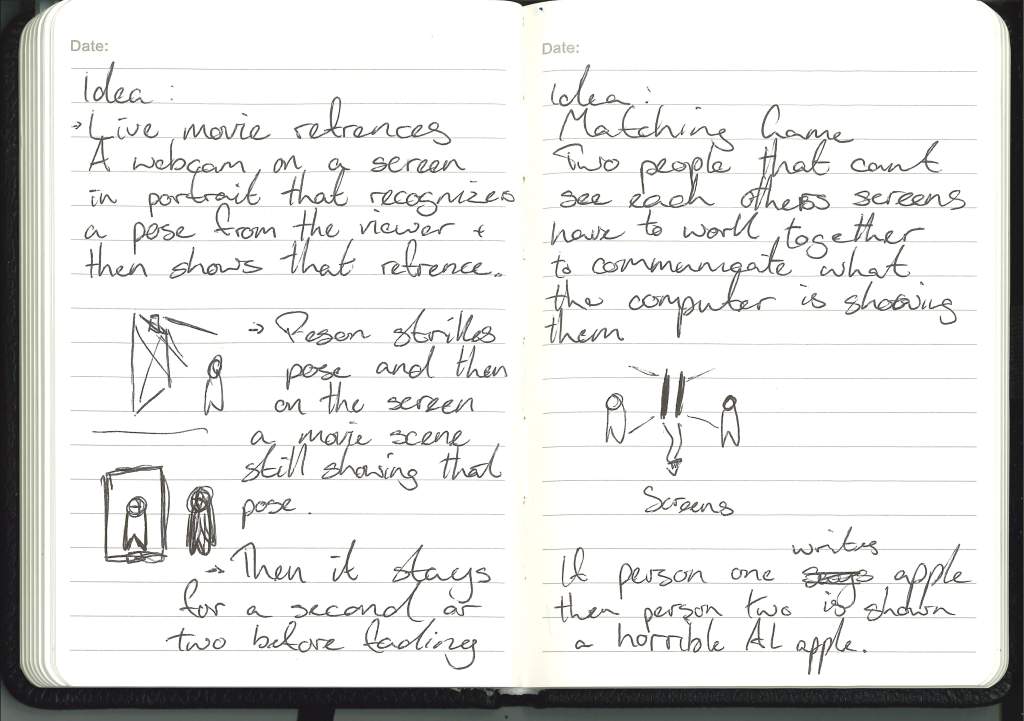 Date:
Idea :
→ Live movie refrences
A webcam on a screen
in portrait that recognizes
a pose from the viewer +
then shows that refrence.
→ Peson strikes
pose and then
on the screen
a movie scene
still showing that
pose.
→ Then it stays
for a second or
two before fading
Date:
Idea :
Matching Game
Two people that cant
see each others screens
have to work together
to communicate what
the computer is showing
them
Screens
writes
If person one says apple
then person two is shown
a horrible AI apple.